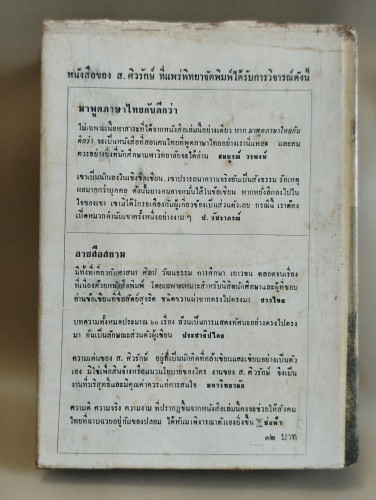 หนังสือของ ส. ศิวรักษ์ ที่แพร่พิทยาจัดพิมพ์ได้รับการวิจารณ์ดังนี้
มาพูดภาษาไทยกันดีกว่า
ไม่เฉพาะเนื้อหาสาระที่ได้จากหนังสือเล่มนี้อย่างเดียว หาก มาพูดภาษาไทยกัน
ดีกว่า จะเป็นหนังสือที่สอนคนไทยที่พูดภาษาไทยอย่างเรานี่แหละ และสม
ควรอย่างยิ่งที่นักศึกษามหาวิทยาลัยจะได้อ่าน สมบูรณ์ วรพงษ์
เขาเป็นนักเลงในเชิงขีดเขียน เขาปรารถนาความจริงอันเป็นสัจธรรม รักเหตุ
ผลมากกว่าบุคคล ดังนั้นบางคนอาจหมั่นไส้ในข้อเขียน หากหยั่งลึกลงไปใน
ใจของเขา เขามิได้โกรธเคืองกับผู้เกี่ยวข้องเป็นส่วนตัวเลย กรณีนี้ เราต้อง
เปิดหมวกคำนับเขาครั้งหนึ่งอย่างงาม ๆ ป. วัชราภรณ์
ลายสือสยาม
มีทั้งที่เกี่ยวกับศาสนา ศิลป วัฒนธรรม การศึกษา เยาวชน ตลอดจนเรื่อง
ที่เนื่องด้วยหนังสือพิมพ์ โดยเฉพาะเหมาะสำหรับนิสิตนักศึกษาและผู้ที่ชอบ
อ่านข้อเขียนที่ซื่อสัตย์สุจริต ชนิดขวานผ่าซากตรงไปตรงมา ชาวไทย
บทความทั้งหมดประมาณ ๖๐ เรื่อง ล้วนเป็นการแสดงทัศนะอย่างตรงไปตรง
มา อันเป็นลักษณะส่วนตัวผู้เขียน ประชาธิปไตย
ความเด่นของ ส. ศิวรักษ์ อยู่ที่เป็นนักคิดที่กล้าเขียนและเขียนอย่างเป็นตัว
เอง มิใช่เพื่อสินจ้างหรือแนวนโยบายของใคร งานของ ส. ศิวรักษ์ จึงเป็น
งานที่บริสุทธิ์และมีคุณค่าควรแก่การสนใจ มหาวิทยาลัย
ความดี ความจริง ความงาม ที่ปรากฏขึ้นจากหนังสือเล่มนี้คงจะช่วยให้สังคม
ไทยที่ฉาบฉวยอยู่กับของปลอม ได้หันมาพิจารณาตัวเองยิ่งขึ้น ช่อฟ้า
๑๒ บาท